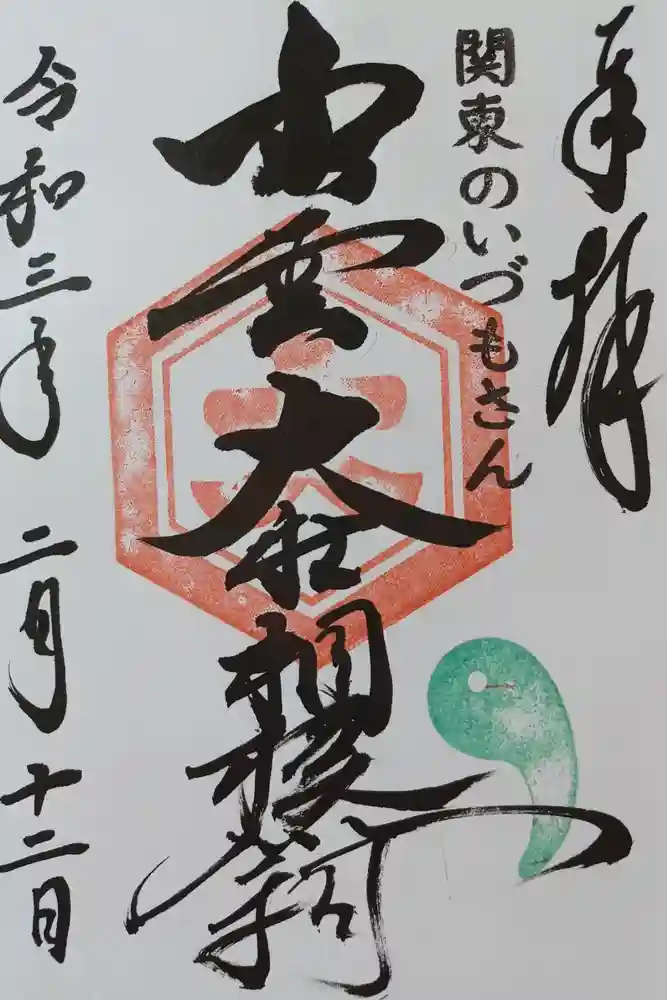 奉拝
関東のいづもさん
出雲大社相模分祠
令和三年 二月 十二日
大